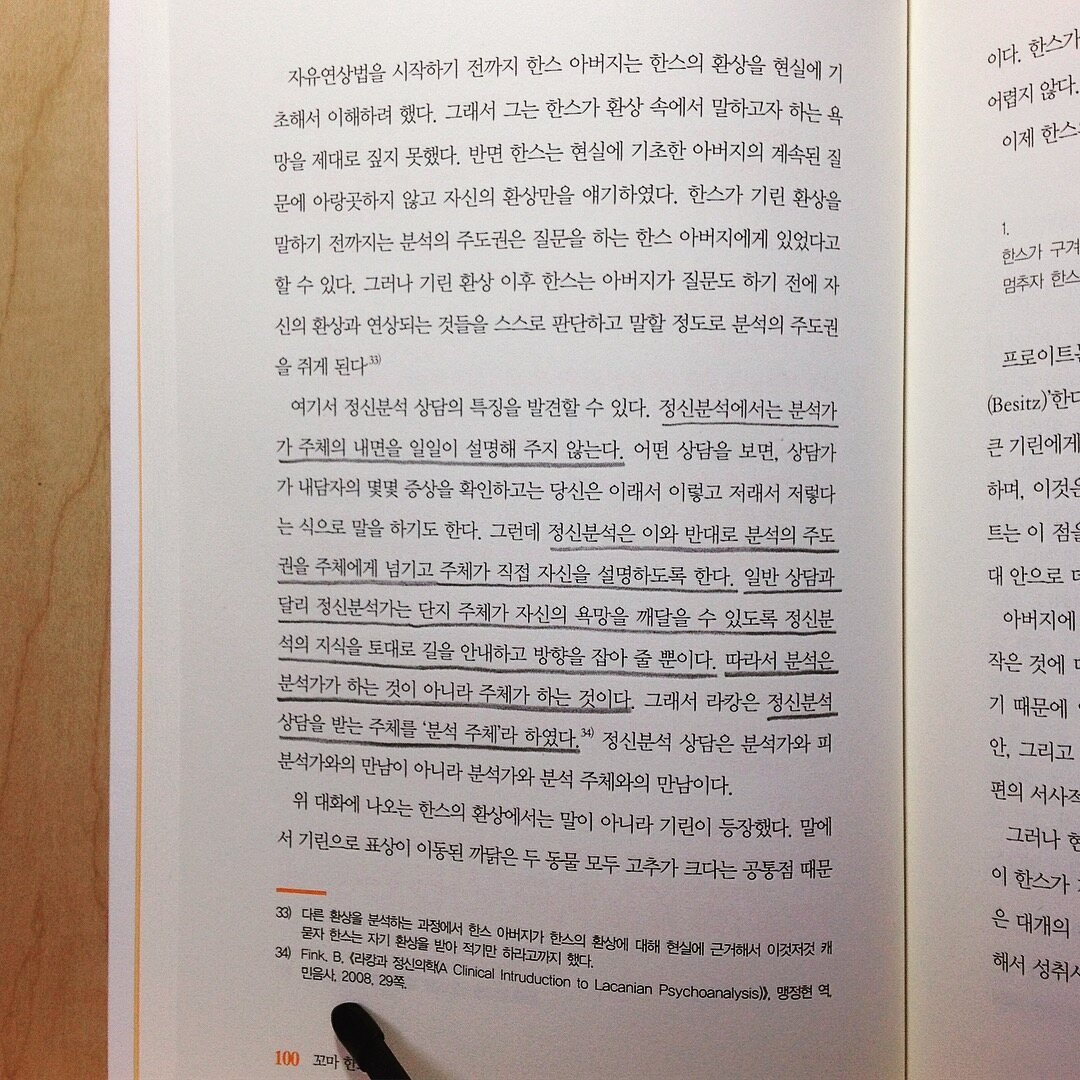 자유연상법을 시작하기 전까지 한스 아버지는 한스의 환상을 현실에 기
초해서 이해하려 했다. 그래서 그는 한스가 환상 속에서 말하고자 하는 욕
망을 제대로 짚지 못했다. 반면 한스는 현실에 기초한 아버지의 계속된 질
문에 아랑곳하지 않고 자신의 환상만을 얘기하였다. 한스가 기린 환상을
말하기 전까지는 분석의 주도권은 질문을 하는 한스 아버지에게 있었다고
할 수 있다. 그러나 기린 환상 이후 한스는 아버지가 질문도 하기 전에 자
신의 환상과 연상되는 것들을 스스로 판단하고 말할 정도로 분석의 주도권
을 쥐게 된다33)
여기서 정신분석 상담의 특징을 발견할 수 있다. 정신분석에서는 분석가
가 주체의 내면을 일일이 설명해 주지 않는다. 어떤 상담을 보면, 상담가
가 내담자의 몇몇 증상을 확인하고는 당신은 이래서 이렇고 저래서 저렇다
는 식으로 말을 하기도 한다. 그런데 정신분석은 이와 반대로 분석의 주도
권을 주체에게 넘기고 주체가 직접 자신을 설명하도록 한다. 일반 상담과
달리 정신분석가는 단지 주체가 자신의 욕망을 깨달을 수 있도록 정신분
석의 지식을 토대로 길을 안내하고 방향을 잡아 줄 뿐이다. 따라서 분석은
분석가가 하는 것이 아니라 주체가 하는 것이다. 그래서 라캉은 정신분석
상담을 받는 주체를 ‘분석 주체’라 하였다.34) 정신분석 상담은 분석가와 피
분석가와의 만남이 아니라 분석가와 분석 주체와의 만남이다.
위 대화에 나오는 한스의 환상에서는 말이 아니라 기린이 등장했다. 말에
서 기린으로 표상이 이동된 까닭은 두 동물 모두 고추가 크다는 공통점 때문
33) 다른 환상을 분석하는 과정에서 한스 아버지가 한스의 환상에 대해 현실에 근거해서 이것저것 캐
묻자 한스는 자기 환상을 받아 적기만 하라고까지 했다.
34) Fink, B. 《라캉과 정신의학(A Clinical Intruduction to Lacanian Psychoanalysis)》, 맹정현 역,
민음사, 2008, 29쪽.
100 꼬마
이다. 한스가
어렵지 않다.
이제 한스
1.
한스가 구겨
멈추자 한스
프로이트는
(Besitz)’한다
큰 기린에게
하며, 이것은
트는 이 점을
대 안으로
아버지에
작은 것에
기 때문에
안, 그리고
편의 서사적
그러나
이 한스가
은 대개의
해서 성취